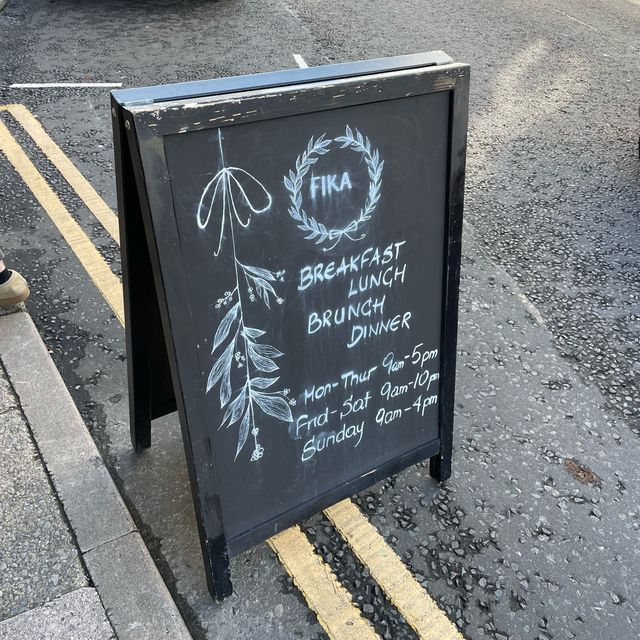 FIKA
BREAKFAST
LUNCH
BRUNCH
DINNER
Mon-Thur 9am-5pm
Frid-Sat 9am-10pm
Sunday 9am-4pm